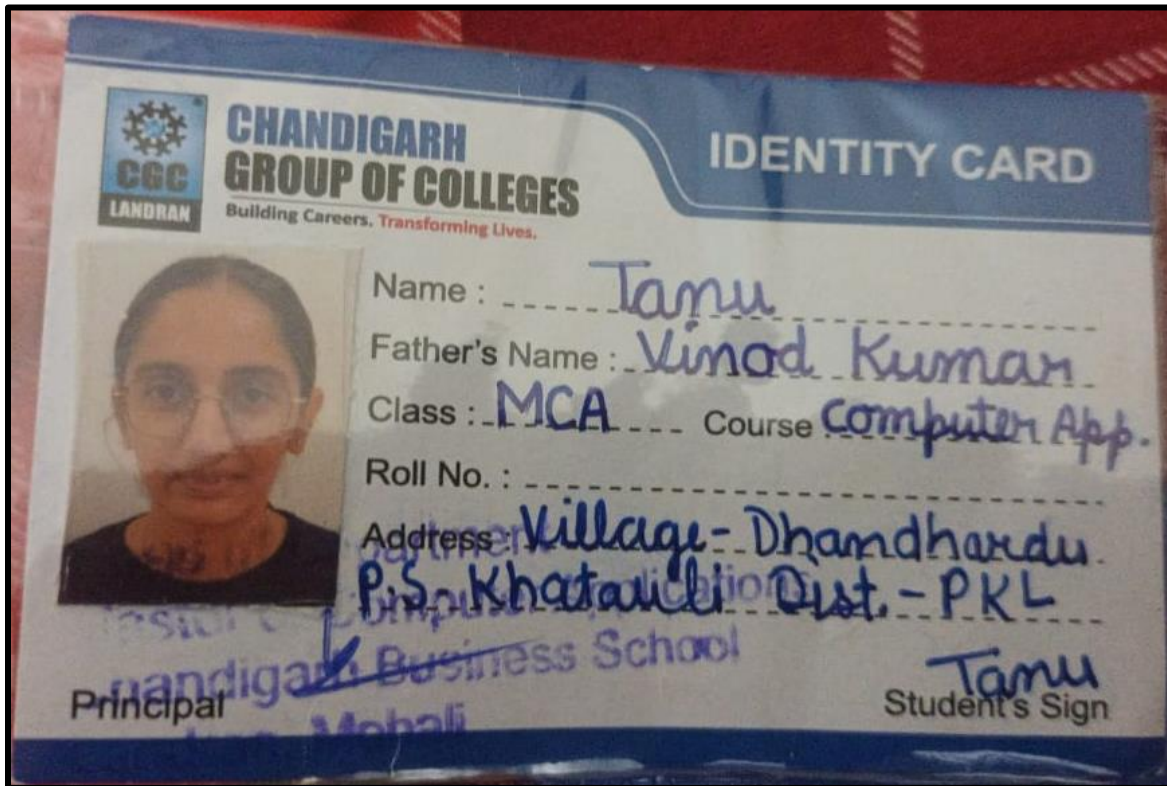 CGC
LANDRAN
CHANDIGARH
GROUP OF COLLEGES
Building Careers. Transforming Lives.
IDENTITY CARD
Name : Tanu
Father's Name : Vinod Kumar
Class : MCA Course Computer App.
Roll No. :
Address : Village - Dhandhardu
P.S. - Khatauli Dist. - PKL
Business School
Mohali
Principal
Tanu
Student's Sign